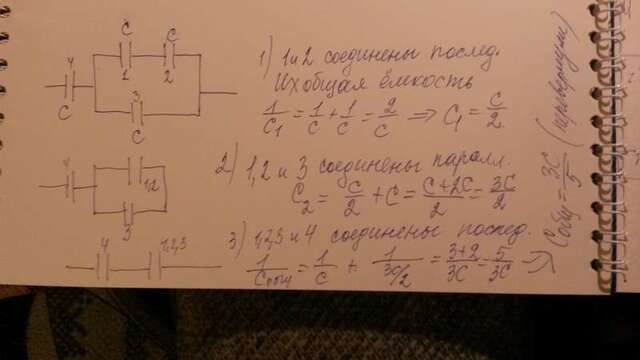 C C
4 1 2
C 3
C
1) 1 и 2 соединены послед.
Их общая ёмкость
1/C₁ = 1/C + 1/C = 2/C => C₁ = C/2
4 1,2
3
2) 1, 2 и 3 соединены паралл.
C₂ = C/2 + C = (C+2C)/2 = 3C/2
4 1,2,3
3) 1,2,3 и 4 соединены послед.
1/Cобщ = 1/C + 1/(3C/2) = (3+2)/3C = 5/3C =>
Cобщ = 3C/5 (перевернули)